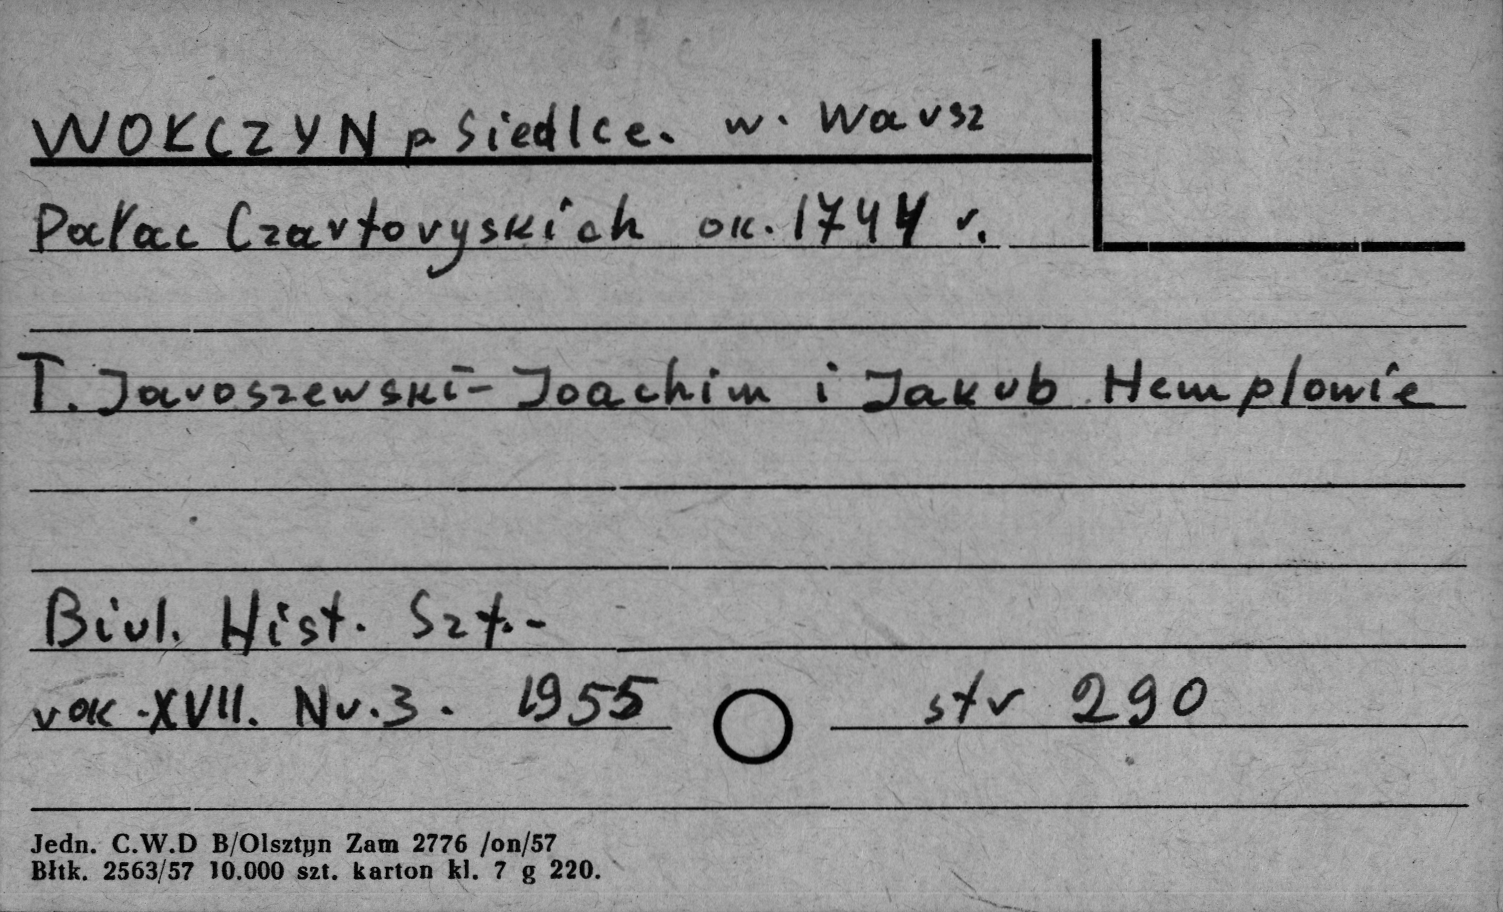 WOKCZYN p Siedlce. w. Warsz
Pałac Czartoryskich ok. 1744 r.
T. Jaroszewski - Joachim i Jakub Hemplowie
Biul. Hist. Szt.-
rok XVII. Nr. 3. 1955 str 290
Jedn. C.W.D B/Olsztyn Zam 2776 /on/57
Błtk. 2563/57 10.000 szt. karton kl. 7 g 220.